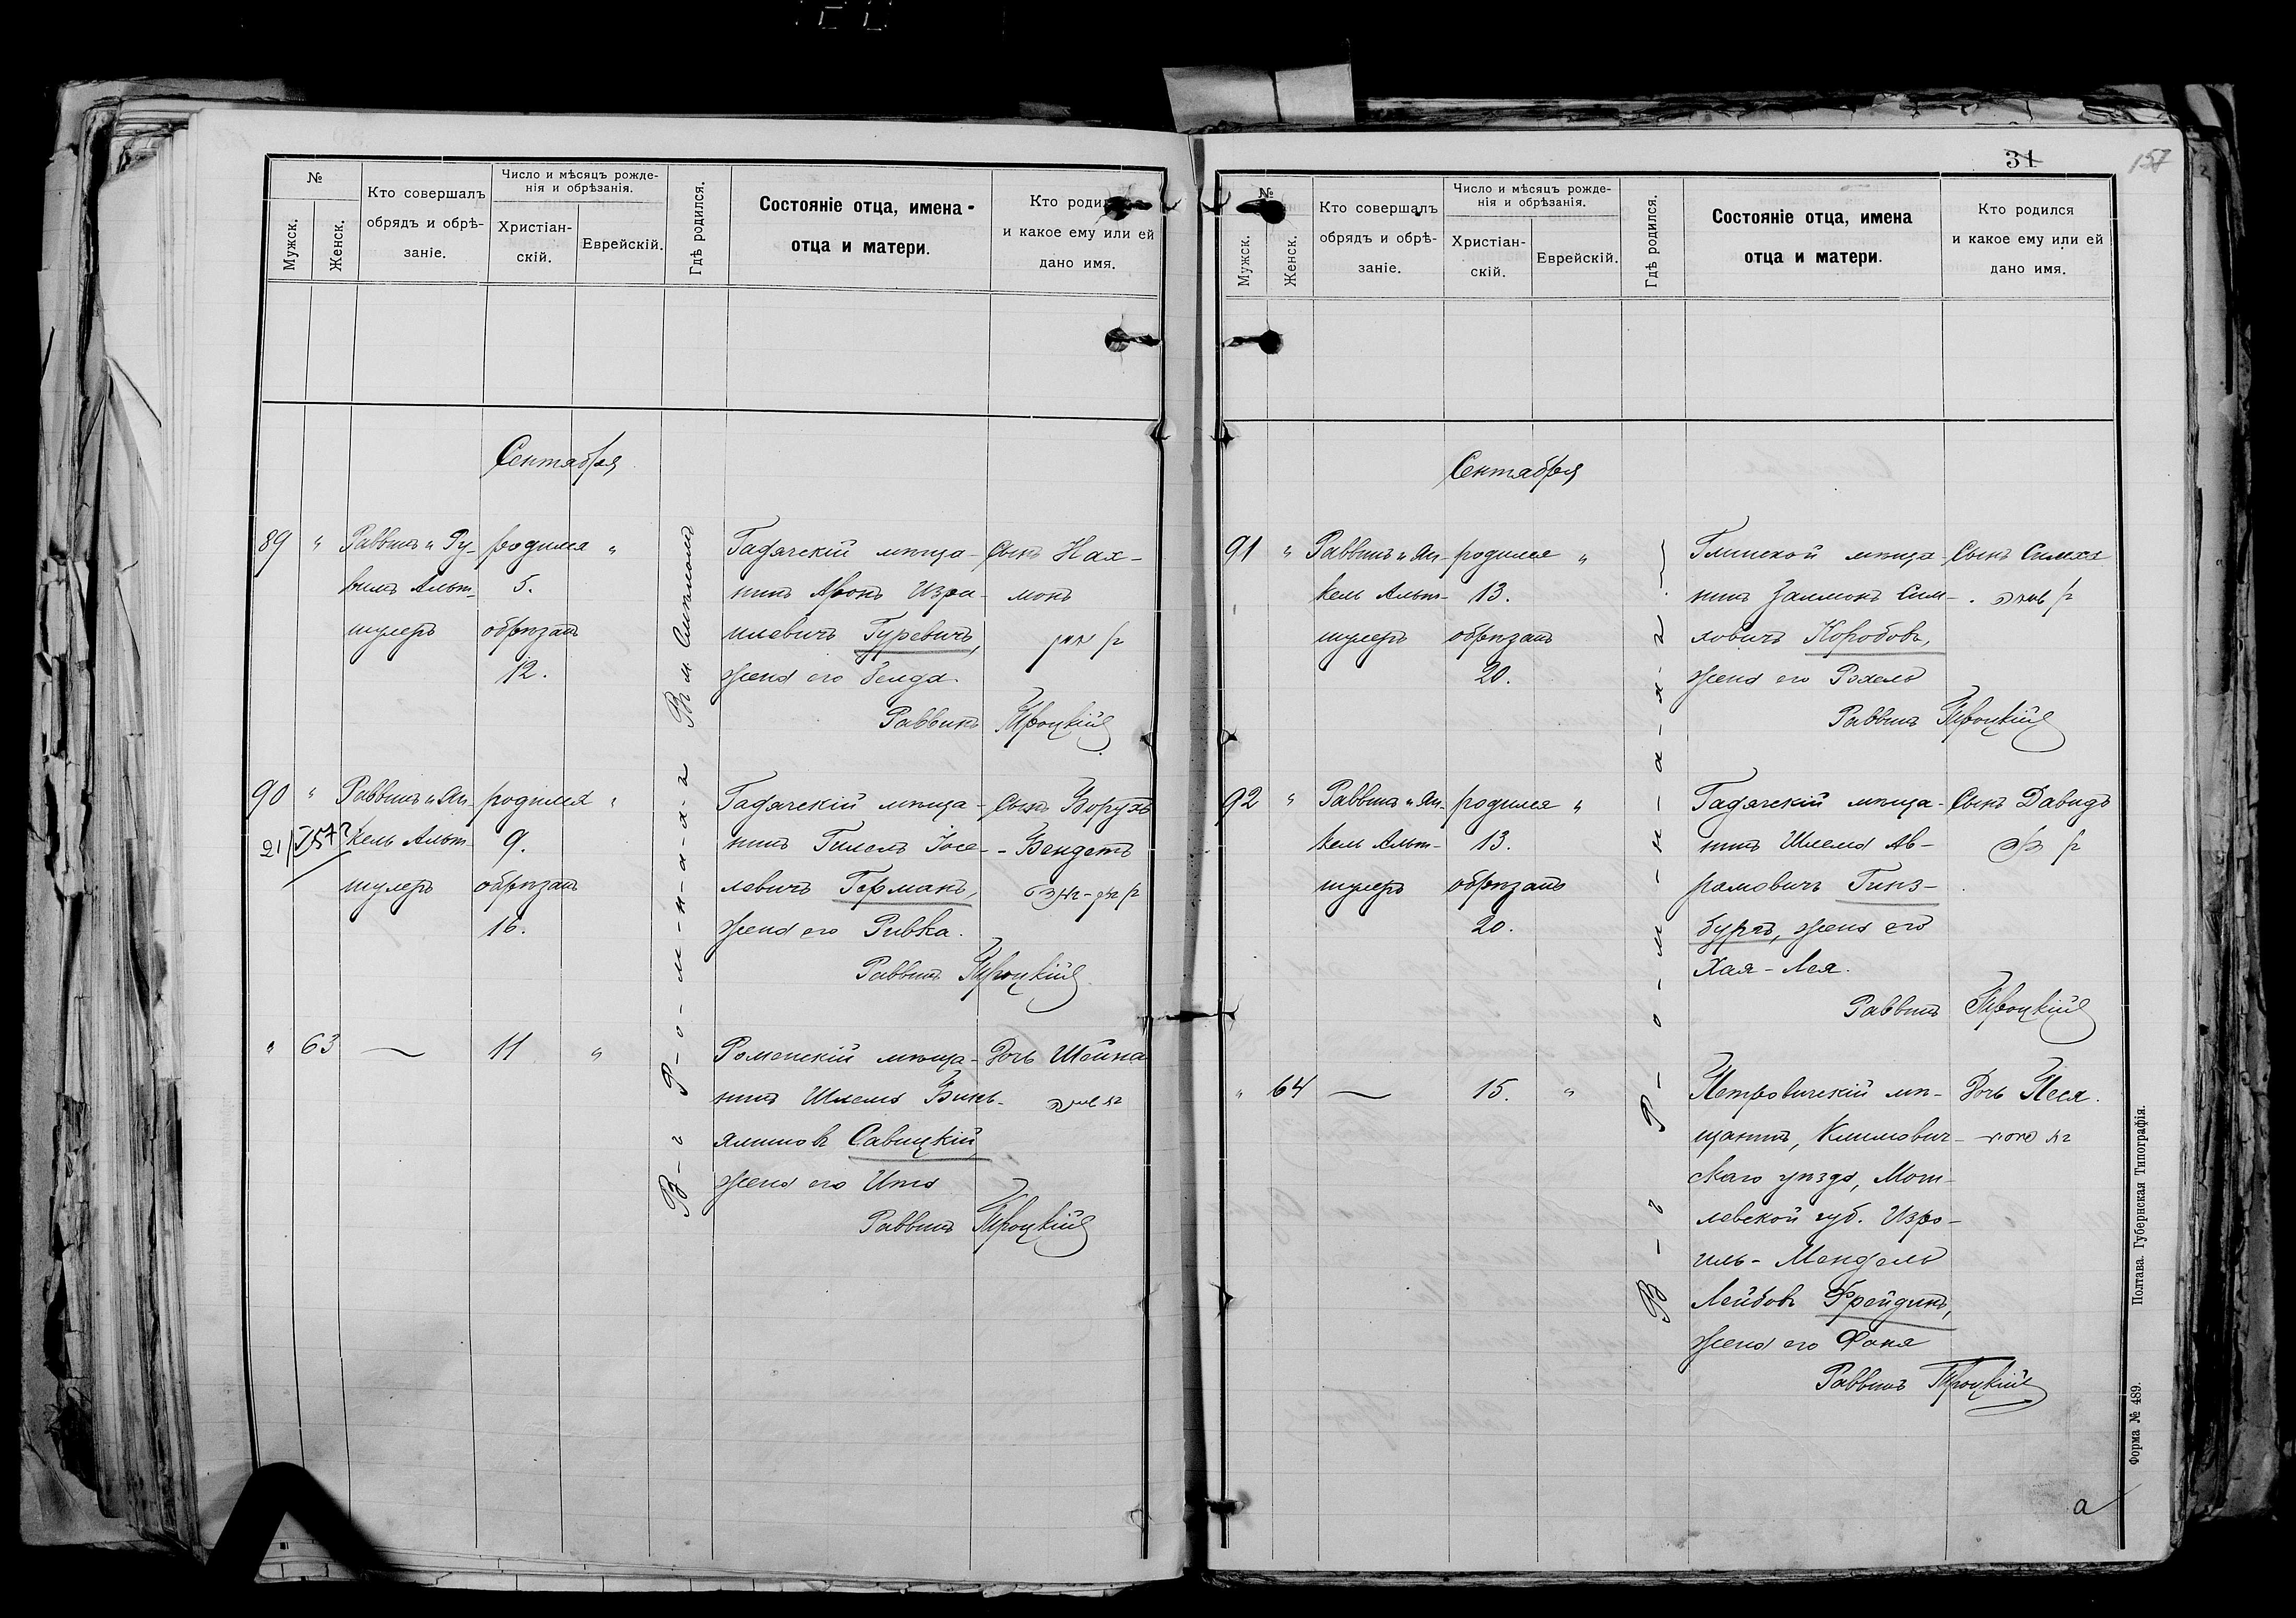 №
Мужск.
Женск.
Кто совершалъ
обрядъ и обрѣ-
заніе.
Число и мѣсяцъ рожде-
нія и обрѣзанія.
Христіан-
скій.
Еврейскій.
Гдѣ родился.
Состояніе отца, имена
отца и матери.
и какое ему или ей
дано имя.
Сентября
89 " Раввинъ и Ру-
вимъ Альт-
шулеръ
родился "
5.
обрѣзанъ
12.
Гадячскій мѣща-
нинъ Аронъ Изра-
илевичъ Гуревичъ,
жена его
Раввинъ Троцкій
Сынъ Нах-
монъ
90 " Раввинъ и Ян-
кель Альт-
шулеръ
родился "
9.
обрѣзанъ
16.
Гадячскій мѣща-
нинъ Гилелъ Іосе-
левичъ Горманъ,
жена его Ривка.
Раввинъ Троцкій
Сынъ Борухъ
- Бендетъ
" 63 — 11 "
Роменскій мѣща-
нинъ Шлема Бинь-
яминовъ Савицкій,
жена его Ита
Раввинъ Троцкій
Дочь Шейна
В-г Р-о-м-н-а-х-ъ
31
157
№
Мужск.
Женск.
Кто совершалъ
обрядъ и обрѣ-
заніе.
Число и мѣсяцъ рожде-
нія и обрѣзанія.
Христіан-
скій.
Еврейскій.
Гдѣ родился.
Состояніе отца, имена
отца и матери.
Кто родился
и какое ему или ей
дано имя.
Сентября
91 " Раввинъ и Ян-
кель Альт-
шулеръ
родился "
13.
обрѣзанъ
20.
Глинской мѣща-
нинъ Залмонъ Сим-
ховичъ Коробовъ,
жена его Рохель
Раввинъ Троцкій
Сынъ Симха
92 " Раввинъ и Ян-
кель Альт-
шулеръ
родился "
13.
обрѣзанъ
20.
Гадячскій мѣща-
нинъ Шлема Аб-
рамовичъ Гинз-
бургъ, жена его
Хая-Лея.
Раввинъ Троцкій
Сынъ Давидъ
" 64 — 15. "
Петровичскій мѣ-
щанинъ, Климович-
скаго уѣзда, Моги-
левской губ. Изра-
иль-Мендель
Лейбовъ Фрейдинъ,
жена его Фаня
Раввинъ Троцкій
Дочь Песя.
В-г Р-о-м-н-а-х-ъ
Полтава. Губернская Типографія.
Форма № 489.
а